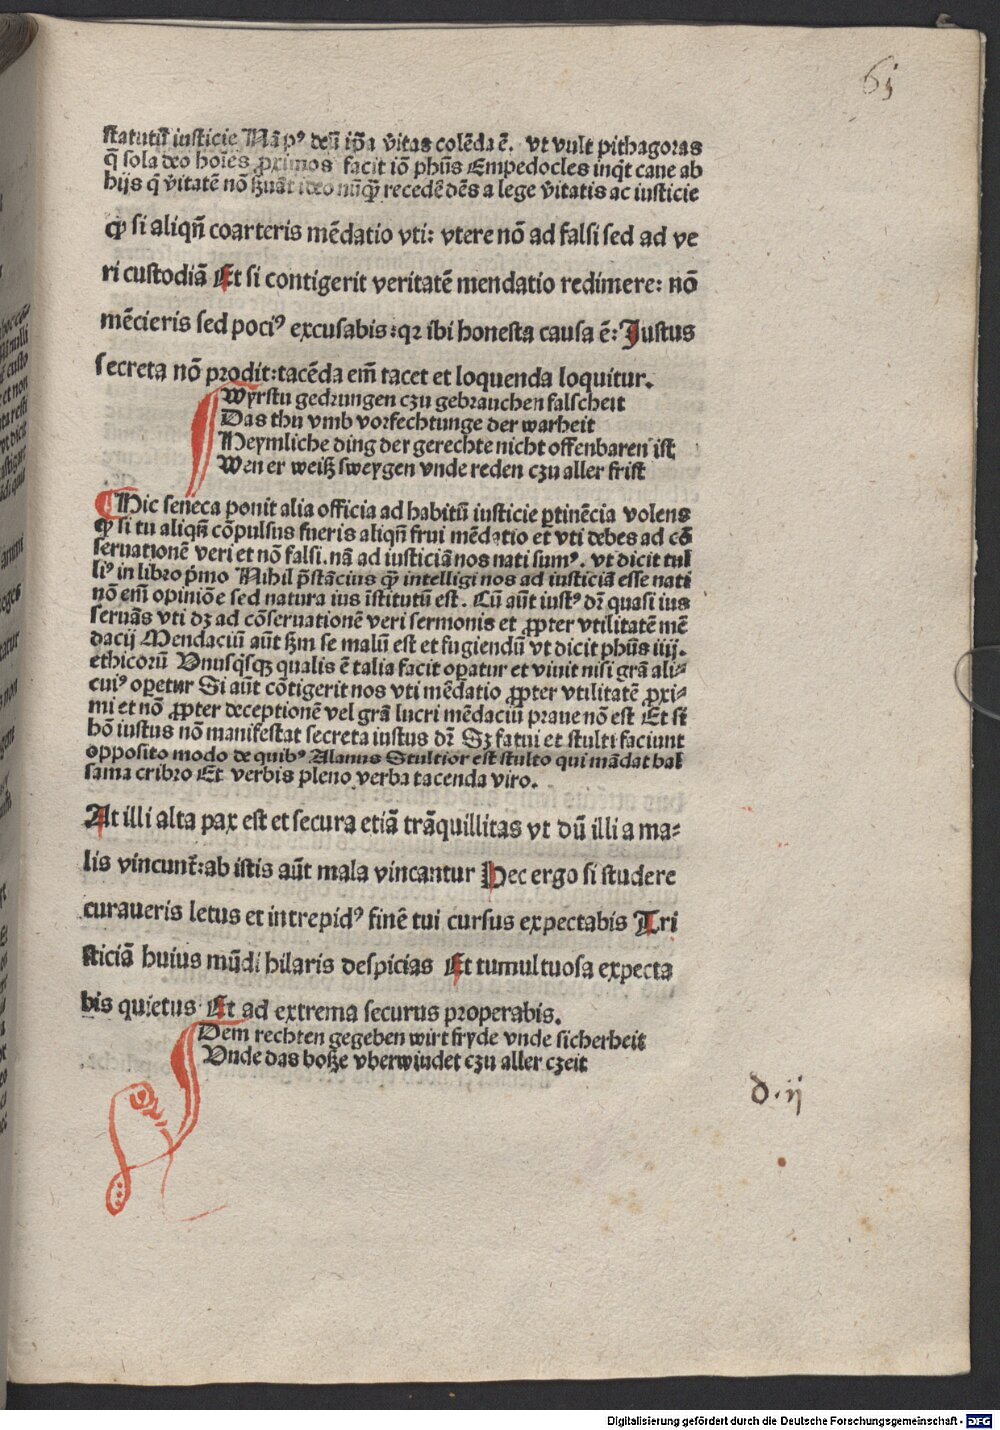 61
statutū iusticie Nā pꝰ deū ip̄a v̄itas colēda ē. vt vult pithagoras
q̄ sola deo hoīes ꝓximos facit iō ph̄us Empedocles inq̄t caue ab
hijs q̄ v̄itatē nō ẜuāt ideo nūq̄ꝫ recedēdēs a lege v̄itatis ac iusticie
ꝙ si aliqn̄ coarteris mēdatio vti: vtere nō ad falsi sed ad ve
ri custodiā Et si contigerit veritatē mendatio redimere: nō
mēcieris sed pociꝰ excusabis:qꝛ ibi honesta causa ē: Justus
secreta nō prodit:tacēda em̄ tacet et loquenda loquitur.
Wyrstu gedrungen czu gebrauchen falscheit
Das thu vmb vorfechtunge der warheit
Heymliche ding der gerechte nicht offenbaren ist
Wen er weiß sweygen vnde reden czu aller frist
Hic seneca ponit alia officia ad habitū iusticie ꝑtinēcia volens
ꝙ si tu aliqn̄ cōpulsus fueris aliqn̄ frui mēdatio et vti debes ad cō
seruationē veri et nō falsi. nā ad iusticiā nos nati sumꝰ. vt dicit tul
liꝰ in libro p̄mo Nihil p̄stācius ꝙ intelligi nos ad iusticiā esse nati
nō em̄ opiniōe sed natura ius īstitutū est. Cū aūt iustꝰ dꝛ̄ quasi ius
seruās vti dꝫ ad cōseruationē veri sermonis et ꝓpter vtilitatē mē
dacij Mendaciū aūt ẜm se malū est et fugiendū vt dicit ph̄us iiij.
ethicorū Vnusq̄sqꝫ qualis ē talia facit oꝑatur et viuit nisi grā ali⸗
cuiꝰ oꝑetur Si aūt cōtigerit nos vti mēdatio ꝓpter vtilitatē ꝓxi⸗
mi et nō ꝓpter deceptionē vel grā lucri mēdaciū praue nō est Et si
hō iustus nō manifestat secreta iustus dꝛ̄ Sꝫ fatui et stulti faciunt
opposito modo de quibꝰ Alanus Stultior est stulto qui mādat bal
sama cribro Et verbis pleno verba tacenda viro.
At illi alta pax est et secura etiā trāquillitas vt dū illi a ma⸗
lis vincunt̄:ab istis aūt mala vincantur Hec ergo si studere
curaueris letus et intrepidꝰ finē tui cursus expectabis Tri
sticiā huius mūdi hilaris despicias Et tumultuosa expecta
bis quietus Et ad extrema securus properabis.
Dem rechten gegeben wirt fryde vnde sicherheit
Vnde das boße vberwindet czu aller czeit
d.ij
Digitalisierung gefördert durch die Deutsche Forschungsgemeinschaft - DFG